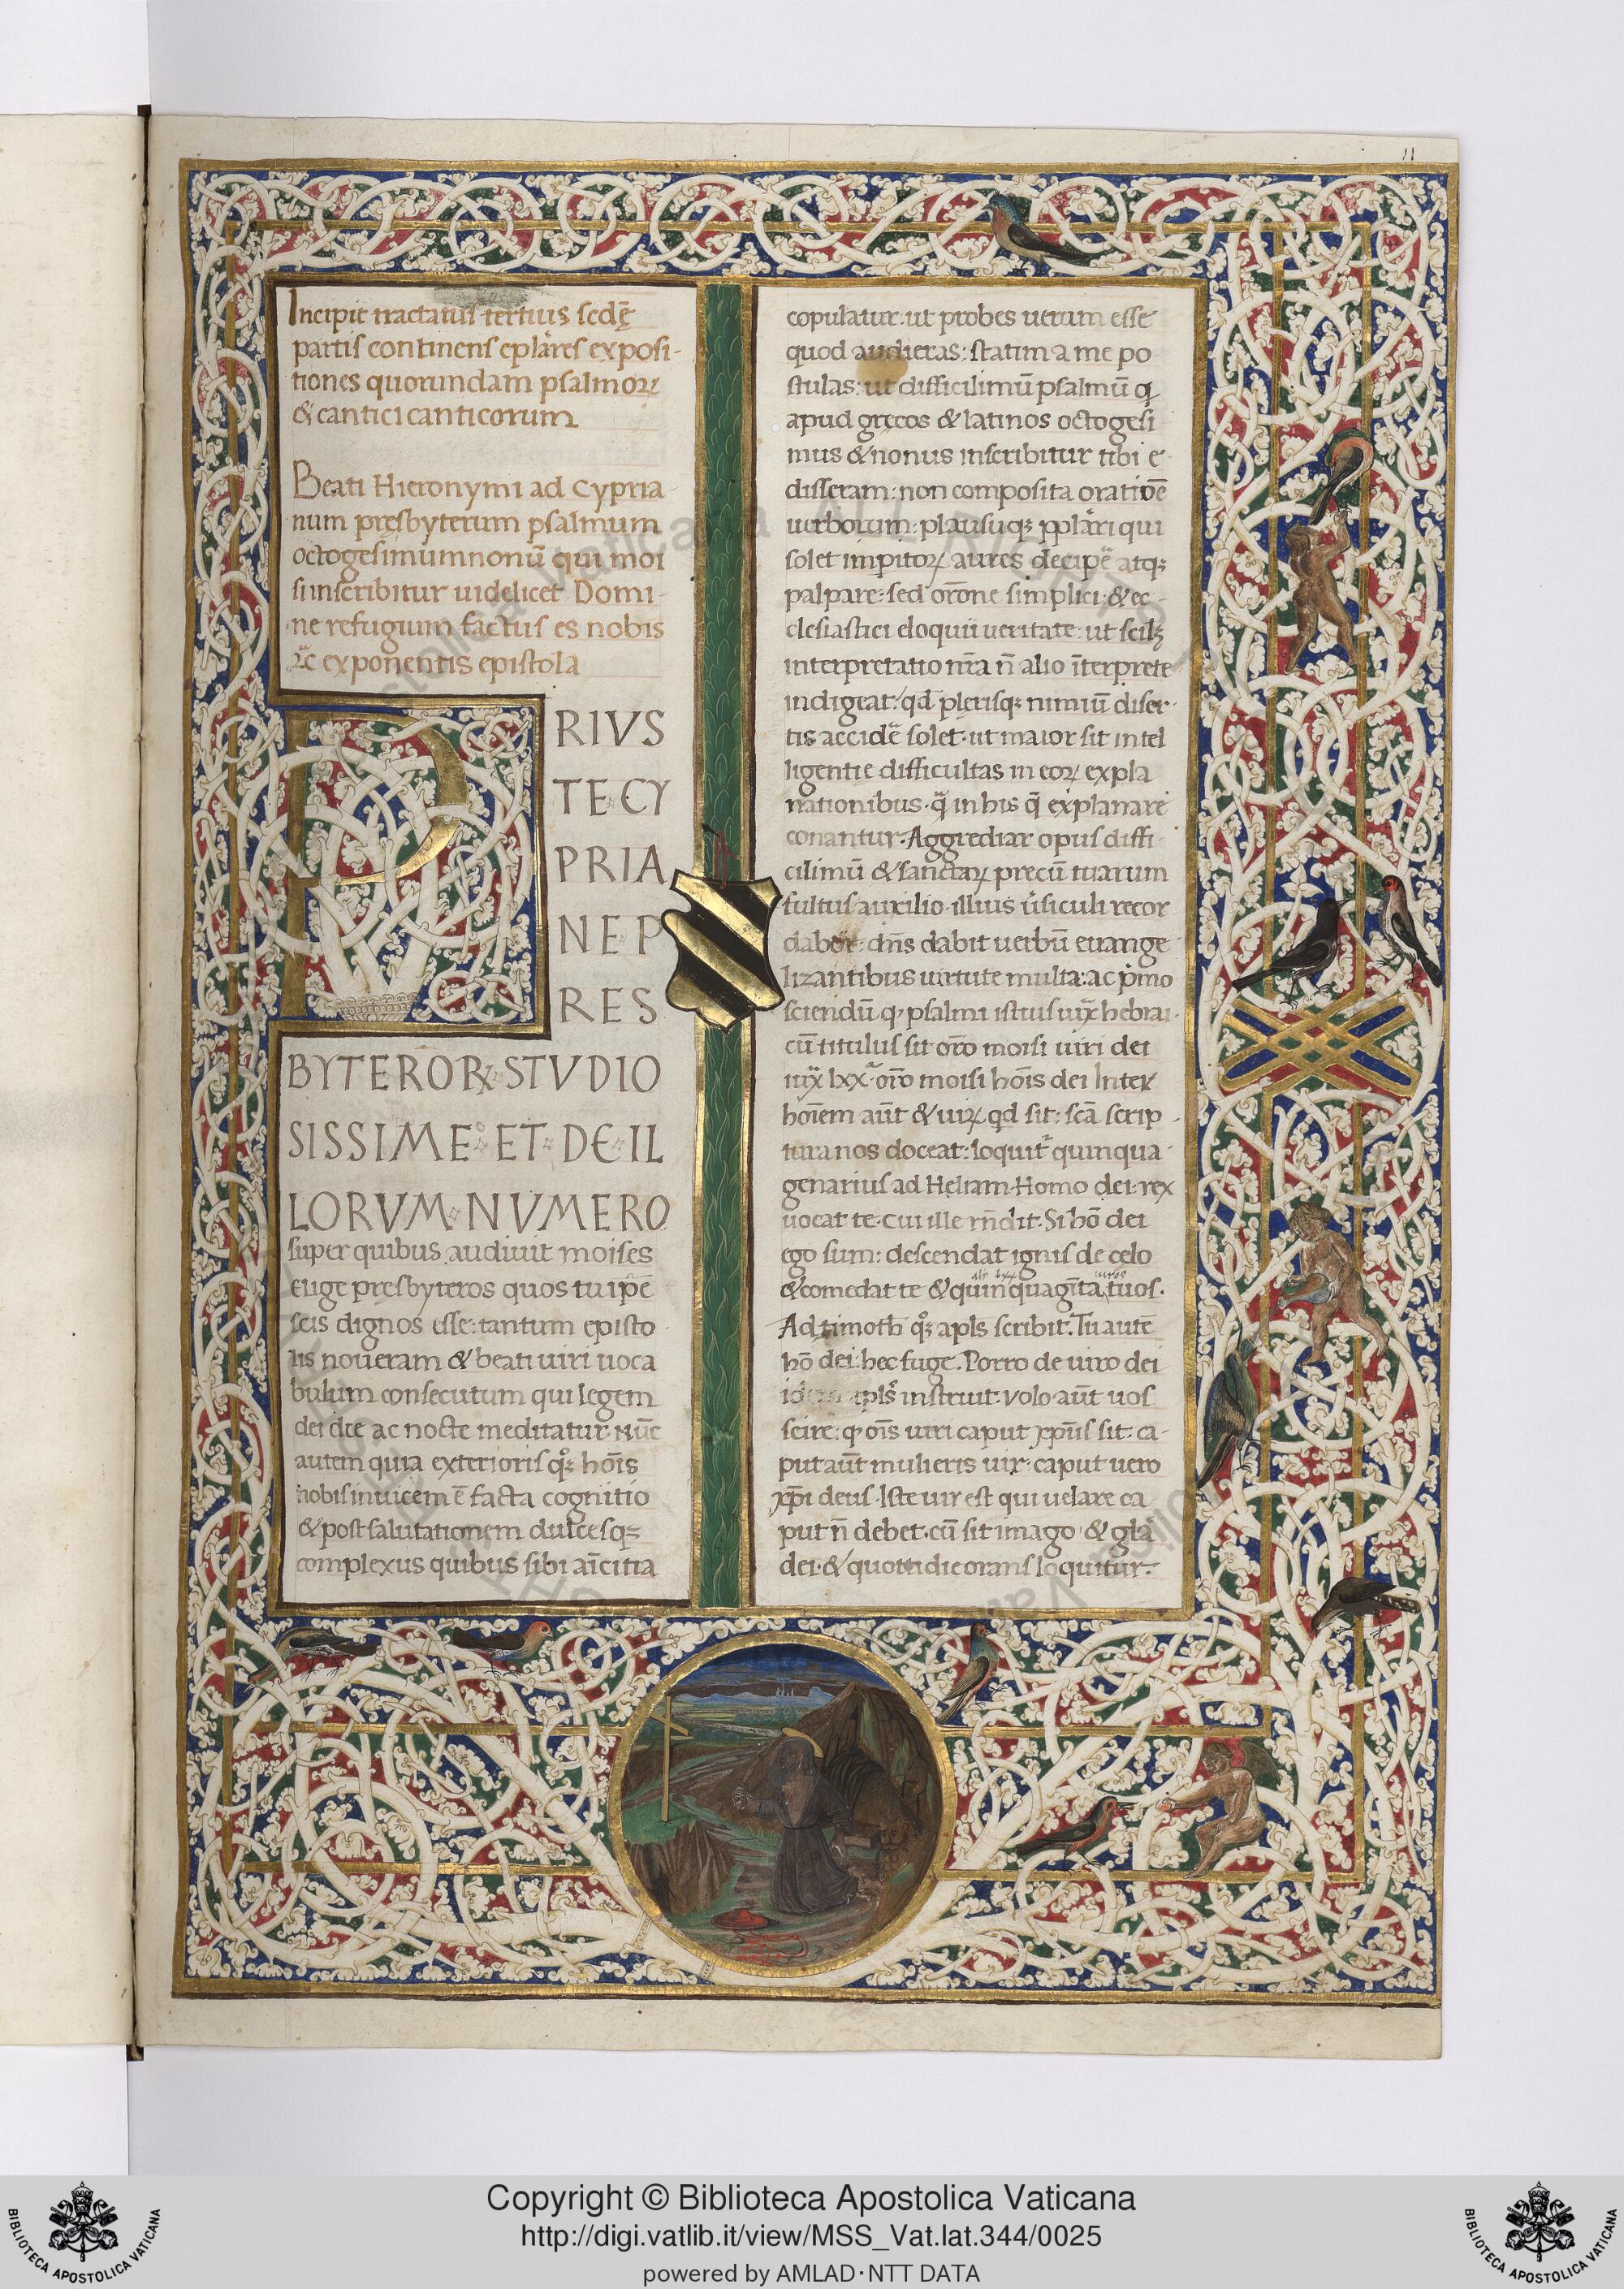 11
Incipit tractatus tertius scdę
partis continens eplãres exposi-
tiones quorundam psalmorꝝ
& cantici canticorum
Beati Hieronymi ad Cypria-
num pręsbyterum psalmum
octogesimumnonũ qui moi
si inscribitur uidelicet Domi-
ne refugium factus es nobis
⁊c exponentis epistola
PRIVS
TE CY
PRIA
NE P
RES
BYTEROꝝ STVDIO
SISSIME ET DE IL
LORVM NVMERO
super quibus audiuit moises
Elige pręsbyteros quos tu ipẽ
scis dignos esse: tantum episto
lis noueram & beati uiri uoca
bulum consecutum qui legem
dei die ac nocte meditatur. Nũc
autem quia exterioris qꝫ hoĩs
nobis inuicem ẽ facta cognitio
& post salutationem dulcesqꝫ
complexus quibus sibi aĩcitia
copulatur. ut probes uerum esse
quod audieras: statim a me po
stulas: ut difficilimũ psalmũ q
apud gręcos & latinos octogesi
mus & nonus inscribitur tibi e
disseram: non composita oratiõe
uerborum: plausuqꝫ pplãri qui
solet impitoꝝ aures decipẽ atqꝫ
palpare: sed orõne simplici & ec-
clesiastici eloquii ueritate: ut scilꝫ
interpretatio nr̃a ñ alio ĩterprete
indigeat: qd plerisqꝫ nimiũ diser-
tis accidẽ solet. ut maior sit intel
ligentie difficultas in eoꝝ expla
nationibus. q̃ in his q̃ explanare
conantur. Aggrediar opus diffi
cilimũ & sanctaꝝ precũ tuarum
fultus auxilio. illius ũsiculi recor
dabor: dñs dabit uerbũ euange
lizantibus uirtute multa: ac p̃mo
sciendũ q psalmi istius iux̃ hebrai-
cũ titulus sit orõ moisi uiri dei
iux̃ lxx. orõ moisi hoĩs dei Inter
hoĩem aũt & uiꝝ qd sit: scã scrip-
tura nos doceat: loquit̃ quinqua-
genarius ad Heliam. Homo dei. rex
uocat te. cui ille rñdit. Si hõ dei
ego sum: descendat ignis de celo
& comedat te & quinquagĩta tuos.
Ad timoth qꝫ apls scribit. Tu autẽ
hõ dei: hec fuge. Porro de uiro dei
apls instruit. Volo aũt uos
scire: q oĩs uiri caput xp̃us sit: ca-
put aũt mulieris uir: caput uero
xp̃i deus. Iste uir est qui uelare ca
put ñ debet. cũ sit imago & glã
dei. & quottidie orans loquitur.
Copyright © Biblioteca Apostolica Vaticana
http://digi.vatlib.it/view/MSS_Vat.lat.344/0025
powered by AMLAD·NTT DATA
BIBLIOTECA APOSTOLICA VATICANA
BIBLIOTECA APOSTOLICA VATICANA